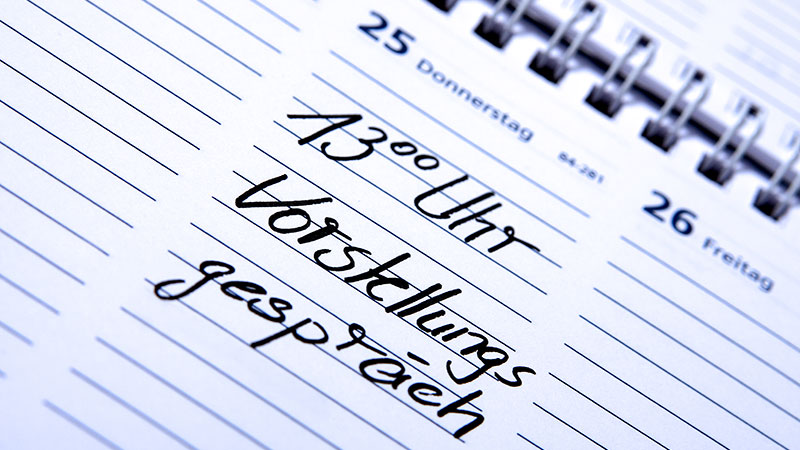 25 Donnerstag
84-281
13⁰⁰ Uhr
Vorstellungs
gespräch
26 Freitag